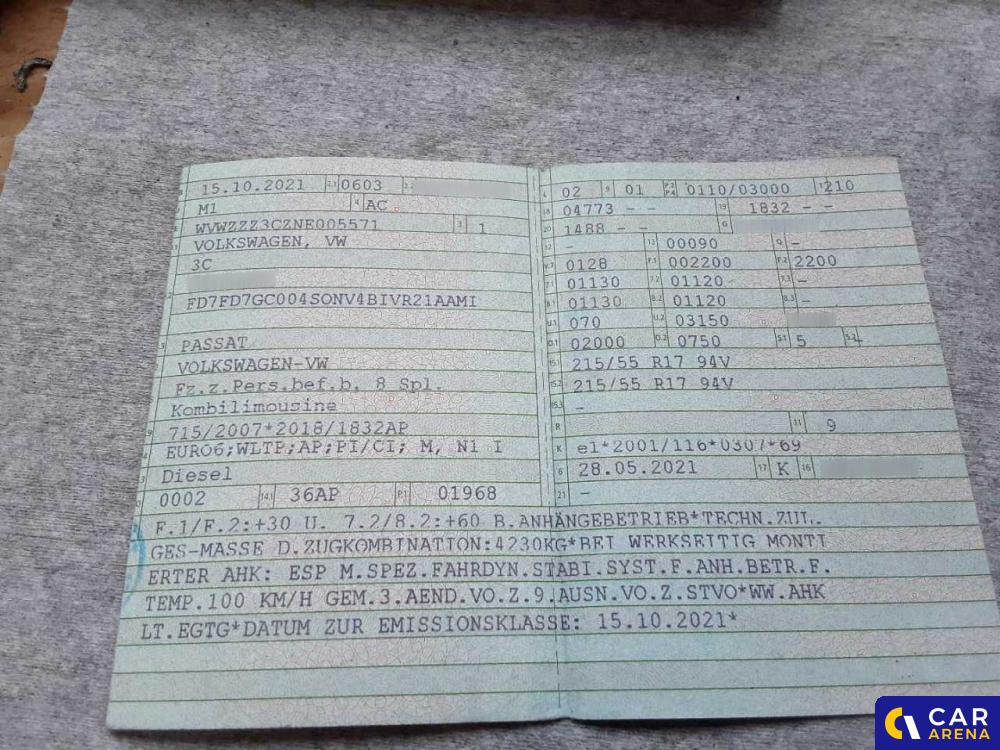 15.10.2021 2.1 0603 2.2
M1 4 AC
WVWZZZ3CZNE005571 3 1
VOLKSWAGEN, VW
3C
FD7FD7GC004SONV4BIVR21AAMI
PASSAT
VOLKSWAGEN-VW
Fz.z.Pers.bef.b. 8 Spl.
Kombilimousine
715/2007*2018/1832AP
EURO6;WLTP;AP;PI/CI; M, N1 I
Diesel
0002 14.1 36AP P.1 01968
L 02 9 01 P.2 P.4 0110/03000 T 210
18 04773 - - 19 1832 - -
20 1488 - - G
12 - 13 00090 Q -
V.7 0128 F.1 002200 F.2 2200
7.1 01130 7.2 01120 -
8.1 01130 8.2 01120 8.3 -
U.1 070 U.2 03150
O.1 02000 O.2 0750 S.1 5 S.2
15.1 215/55 R17 94V
15.2 215/55 R17 94V
15.3 -
R 11 9
K e1*2001/116*0307*69
6 28.05.2021 17 K 16
21 -
F.1/F.2:+30 U. 7.2/8.2:+60 B.ANHÄNGEBETRIEB*TECHN.ZUL.
GES-MASSE D.ZUGKOMBINATION:4230KG*BEI WERKSEITIG MONTI
ERTER AHK: ESP M.SPEZ.FAHRDYN.STABI.SYST.F.ANH.BETR.F.
TEMP.100 KM/H GEM.3.AEND.VO.Z.9.AUSN.VO.Z.STVO*WW.AHK
LT.EGTG*DATUM ZUR EMISSIONSKLASSE: 15.10.2021*
CAR
ARENA